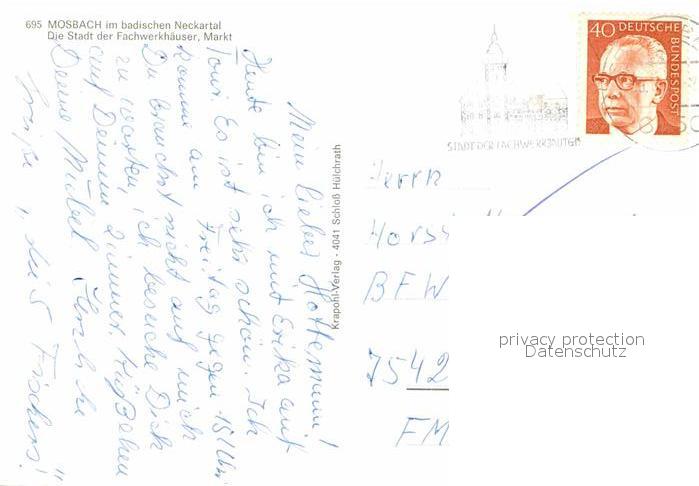 695 MOSBACH im badischen Neckartal
Die Stadt der Fachwerkhäuser, Markt
Mein lieber Hottemann!
Heute bin ich mit Erika auf
Tour. Es ist sehr schön. Ich
komme am Freitag gegen 15 Uhr
Du brauchst nicht auf mich
zu warten, ich besuche Dich
auf Deinem Zimmer.
Deine Mübel
Grüße
Krapohl-Verlag - 4041 Schloß Hülchrath
STADT DER FACHWERKBAUTEN
40 DEUTSCHE
BUNDESPOST
Herrn
Hors
BFW
7542
privacy protection
Datenschutz